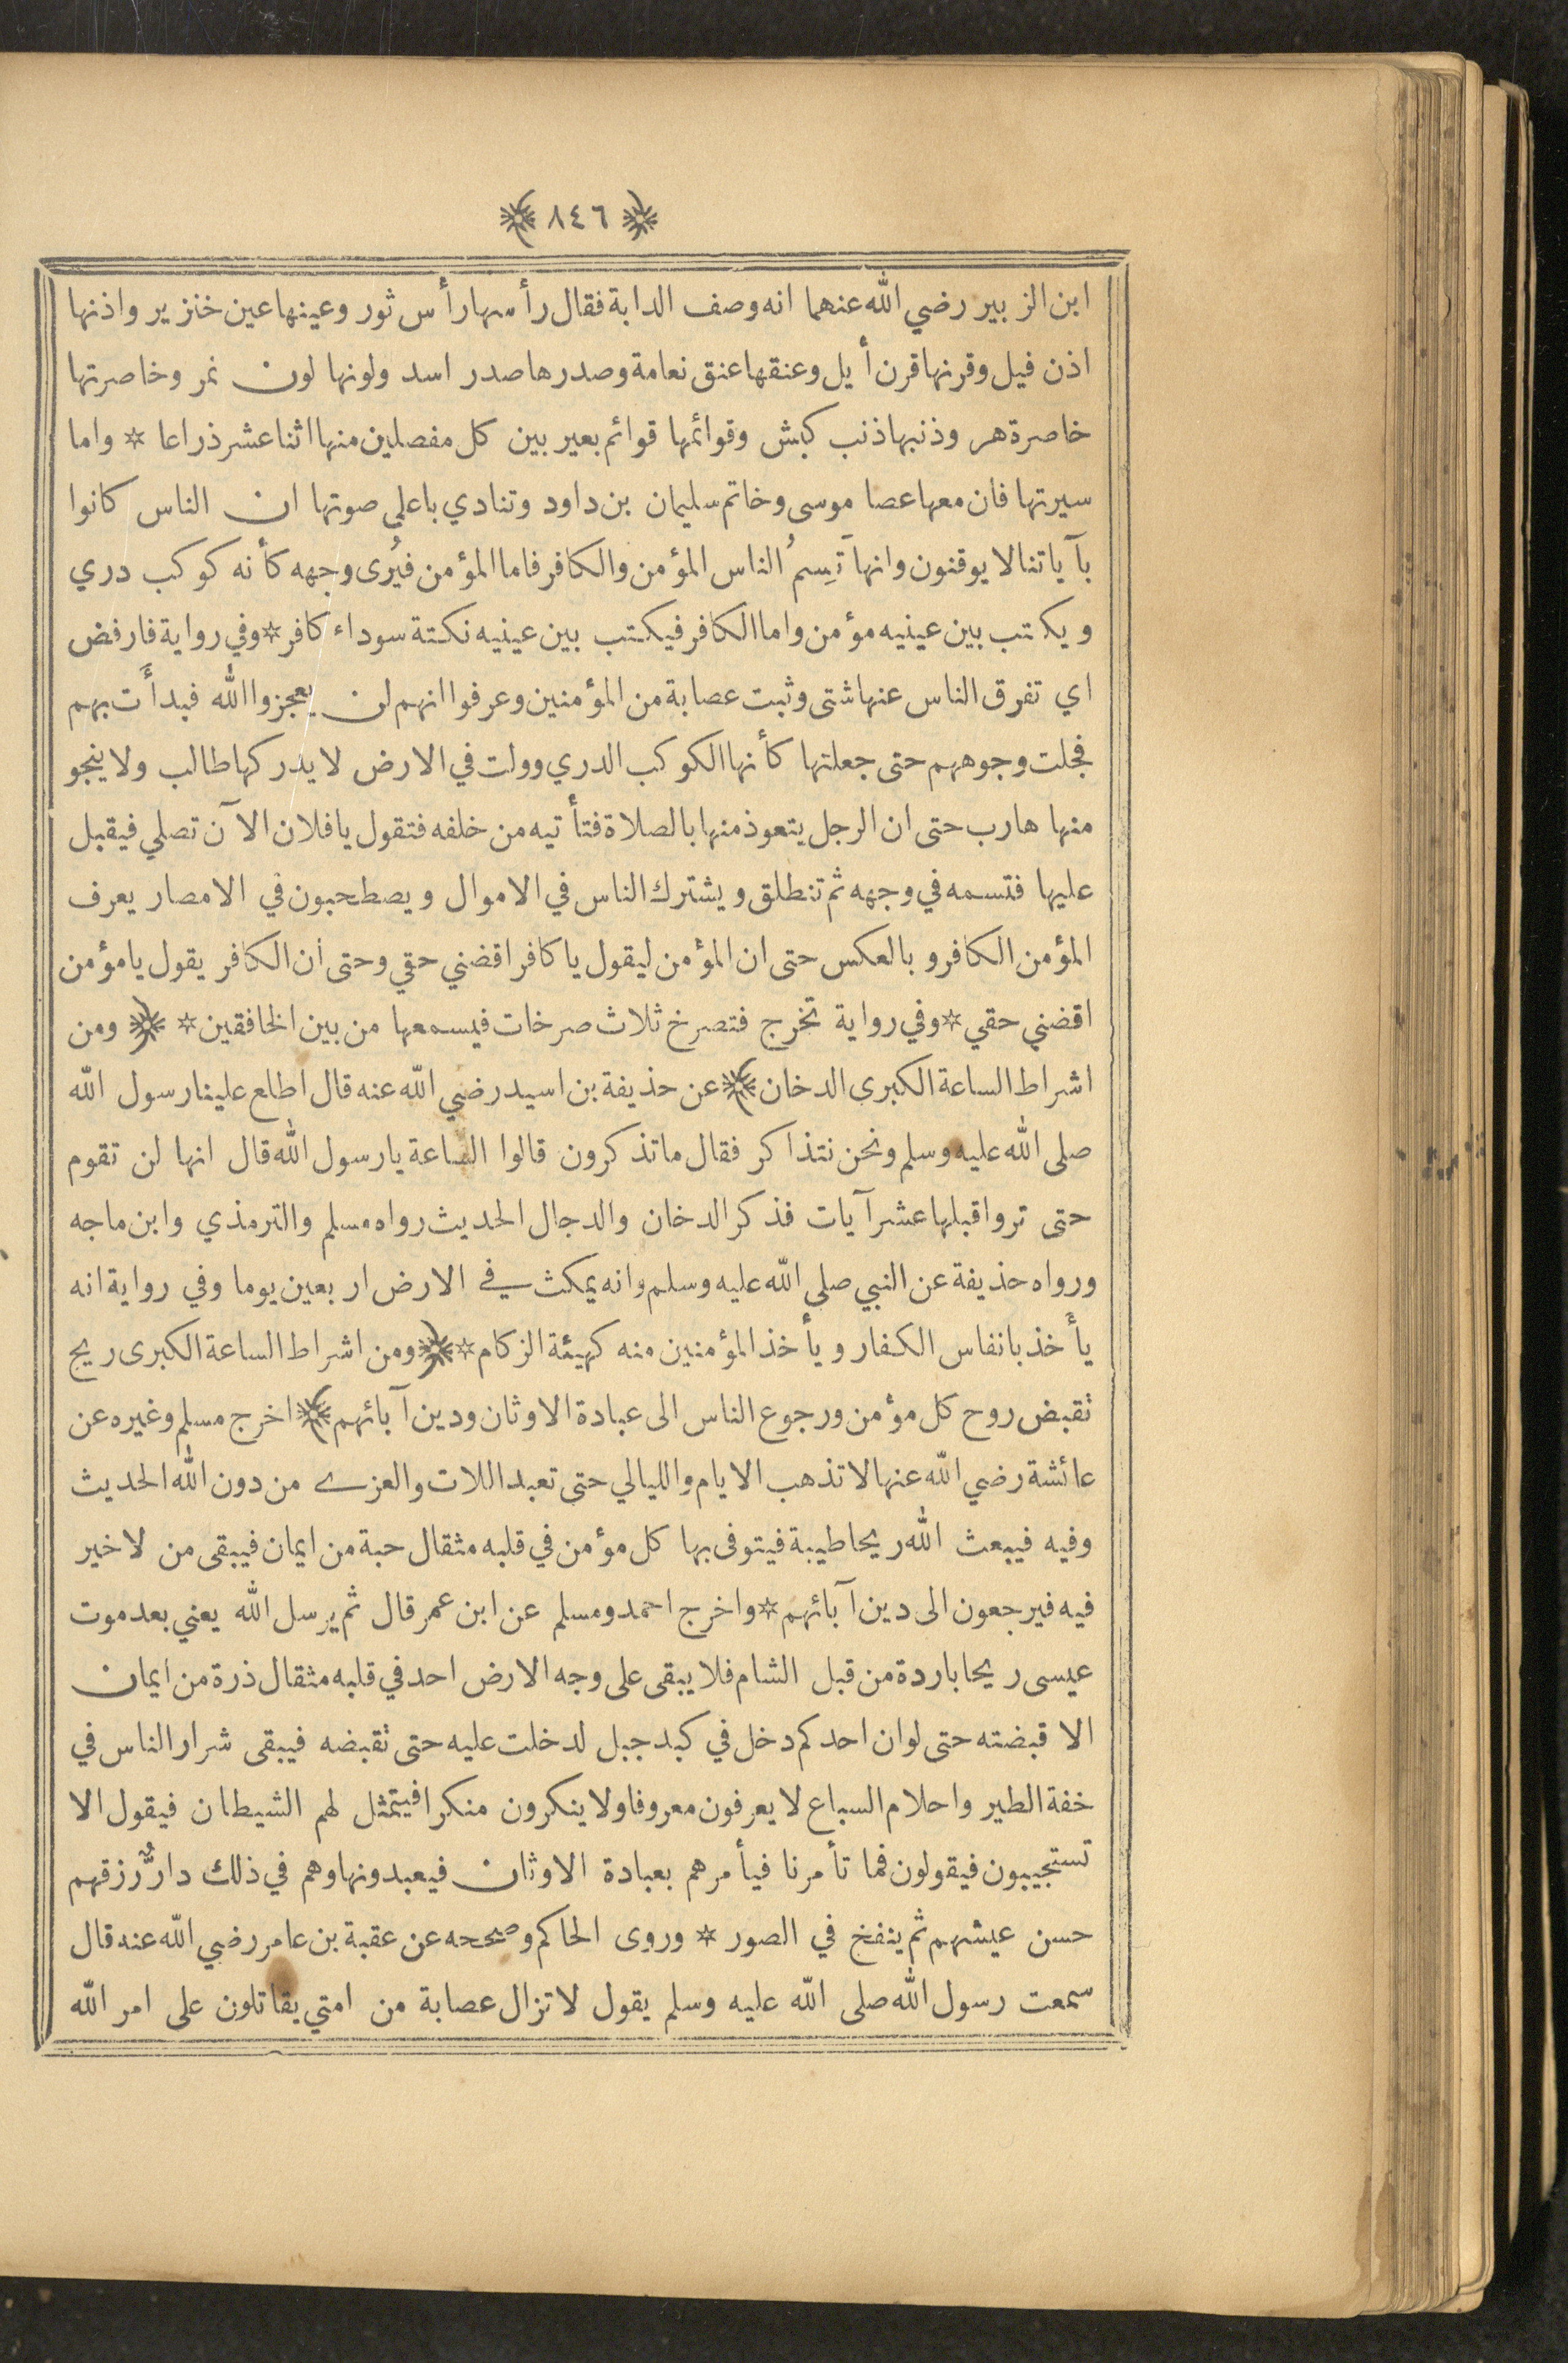 ﴿ ٨٤٦ ﴾
ابن الزبير رضي الله عنهما انه وصف الدابة فقال رأسها رأس ثور وعينها عين خنزير واذنها
اذن فيل وقرنها قرن أيل وعنقها عنق نعامة وصدرها صدر اسد ولونها لون نمر وخاصرتها
خاصرة هر وذنبها ذنب كبش وقوائمها قوائم بعير بين كل مفصلين منها اثنا عشر ذراعا * واما
سيرتها فان معها عصا موسى وخاتم سليمان بن داود وتنادي باعلى صوتها ان الناس كانوا
بآياتنا لا يوقنون وانها تَسِمُ الناس المؤمن والكافر فاما المؤمن فيُرى وجهه كأنه كوكب دري
ويكتب بين عينيه مؤمن واما الكافر فيكتب بين عينيه نكتة سوداء كافر * وفي رواية فارفض
اي تفرق الناس عنها شتى وثبت عصابة من المؤمنين وعرفوا انهم لن يعجزوا الله فبدأَت بهم
فجلت وجوههم حتى جعلتها كأنها الكوكب الدري وولت في الارض لا يدركها طالب ولا ينجو
منها هارب حتى ان الرجل يتعوذ منها بالصلاة فتأتيه من خلفه فتقول يا فلان الآن تصلي فيقبل
عليها فتسمه في وجهه ثم تنطلق ويشترك الناس في الاموال ويصطحبون في الامصار يعرف
المؤمن الكافر وبالعكس حتى ان المؤمن ليقول يا كافر اقضني حقي وحتى ان الكافر يقول يا مؤمن
اقضني حقي * وفي رواية تخرج فتصرخ ثلاث صرخات فيسمعها من بين الخافقين * ﴿ ومن
اشراط الساعة الكبرى الدخان ﴾ عن حذيفة بن اسيد رضي الله عنه قال اطلع علينا رسول الله
صلى الله عليه وسلم ونحن نتذاكر فقال ما تذكرون قالوا الساعة يا رسول الله قال انها لن تقوم
حتى تروا قبلها عشر آيات فذكر الدخان والدجال الحديث رواه مسلم والترمذي وابن ماجه
ورواه حذيفة عن النبي صلى الله عليه وسلم وانه يمكث في الارض اربعين يوما وفي رواية انه
يأَخذ بانفاس الكفار ويأخذ المؤمنين منه كهيئة الزكام * ﴿ ومن اشراط الساعة الكبرى ريح
تقبض روح كل مؤمن ورجوع الناس الى عبادة الاوثان ودين آبائهم ﴾ اخرج مسلم وغيره عن
عائشة رضي الله عنها لا تذهب الايام والليالي حتى تعبد اللات والعزى من دون الله الحديث
وفيه فيبعث الله ريحا طيبة فيتوفى بها كل مؤمن في قلبه مثقال حبة من ايمان فيبقى من لا خير
فيه فيرجعون الى دين آبائهم * واخرج احمد ومسلم عن ابن عمر قال ثم يرسل الله يعني بعد موت
عيسى ريحا باردة من قبل الشام فلا يبقى على وجه الارض احد في قلبه مثقال ذرة من ايمان
الا قبضته حتى لو ان احدكم دخل في كبد جبل لدخلت عليه حتى تقبضه فيبقى شرار الناس في
خفة الطير واحلام السباع لا يعرفون معروفا ولا ينكرون منكرا فيتمثل لهم الشيطان فيقول الا
تستجيبون فيقولون فما تأمرنا فيأمرهم بعبادة الاوثان فيعبدونها وهم في ذلك دارٌّ رزقهم
حسن عيشهم ثم ينفخ في الصور * وروى الحاكم وصححه عن عقبة بن عامر رضي الله عنه قال
سمعت رسول الله صلى الله عليه وسلم يقول لا تزال عصابة من امتي يقاتلون على امر الله